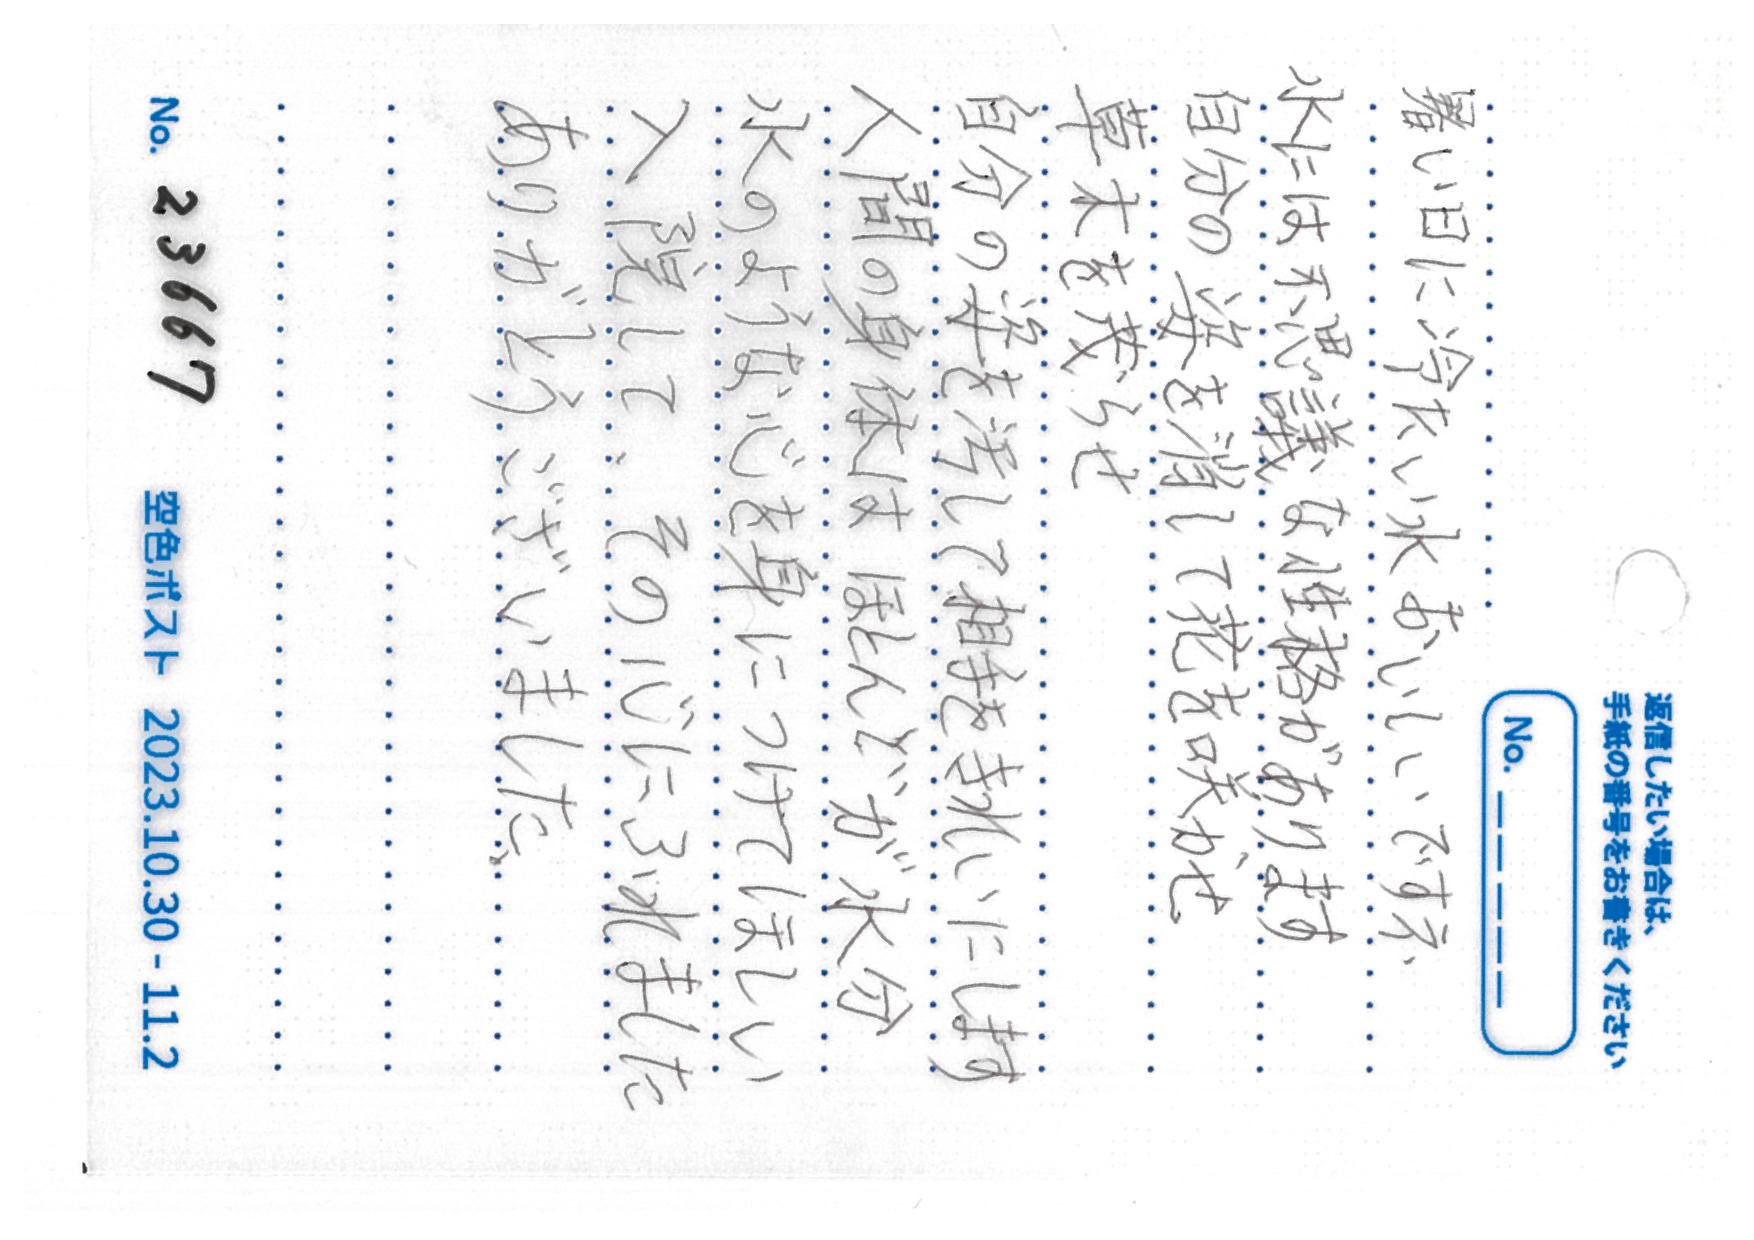 返信したい場合は、
手紙の番号をお書きください
No. _ _ _ _ _
暑い日に冷たい水おいしいですネ
水には不思議な性格があります
自分の姿を消して花を咲かせ
草木を茂らせ
自分の姿を汚して相手をきれいにします
人間の身体はほとんどが水分
水のような心を身につけてほしい
入院して、その心にふれました
ありがとうございました。
No. 23667
空色ポスト 2023.10.30 - 11.2